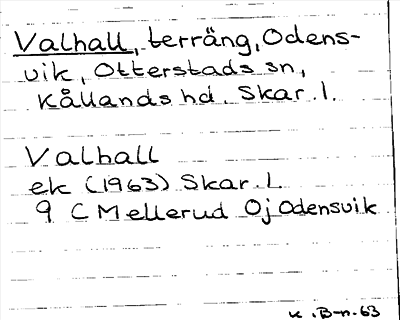 Valhall, terräng, Odens-
vik, Otterstads sn,
Kållands hd. Skar. l.
Valhall
ek (1963) Skar. l.
9 C Mellerud Oj Odensvik
K. B-n. 63